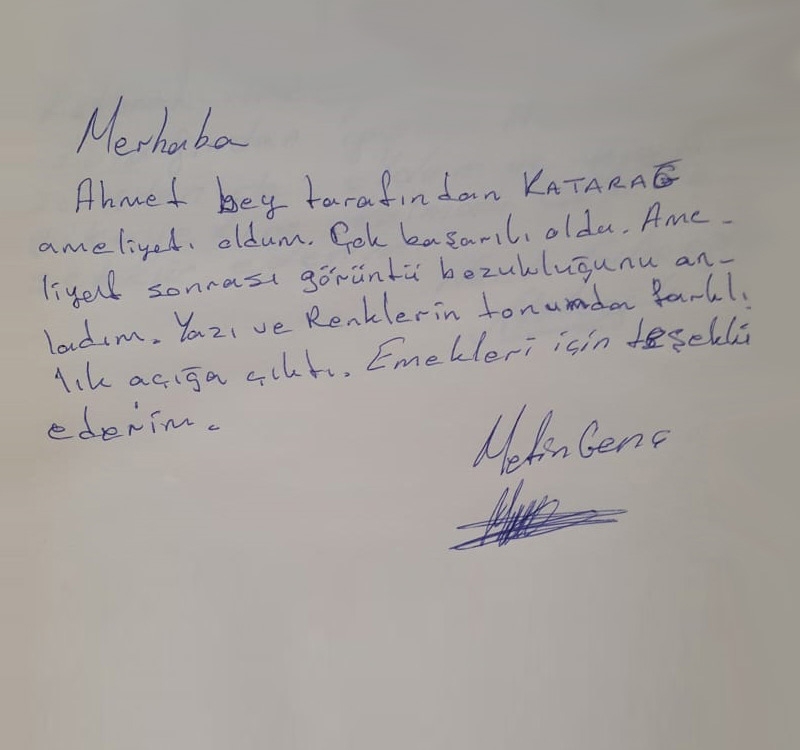 Merhaba
Ahmet bey tarafından KATARAG
ameliyatı oldum. Çok başarılı oldu. Ame-
liyat sonrası görüntü bozukluğunu an-
ladım. Yazı ve Renklerin tonumda farklı
lık açığa çıktı. Emekleri için teşekkü
ederim.
Metin Genç